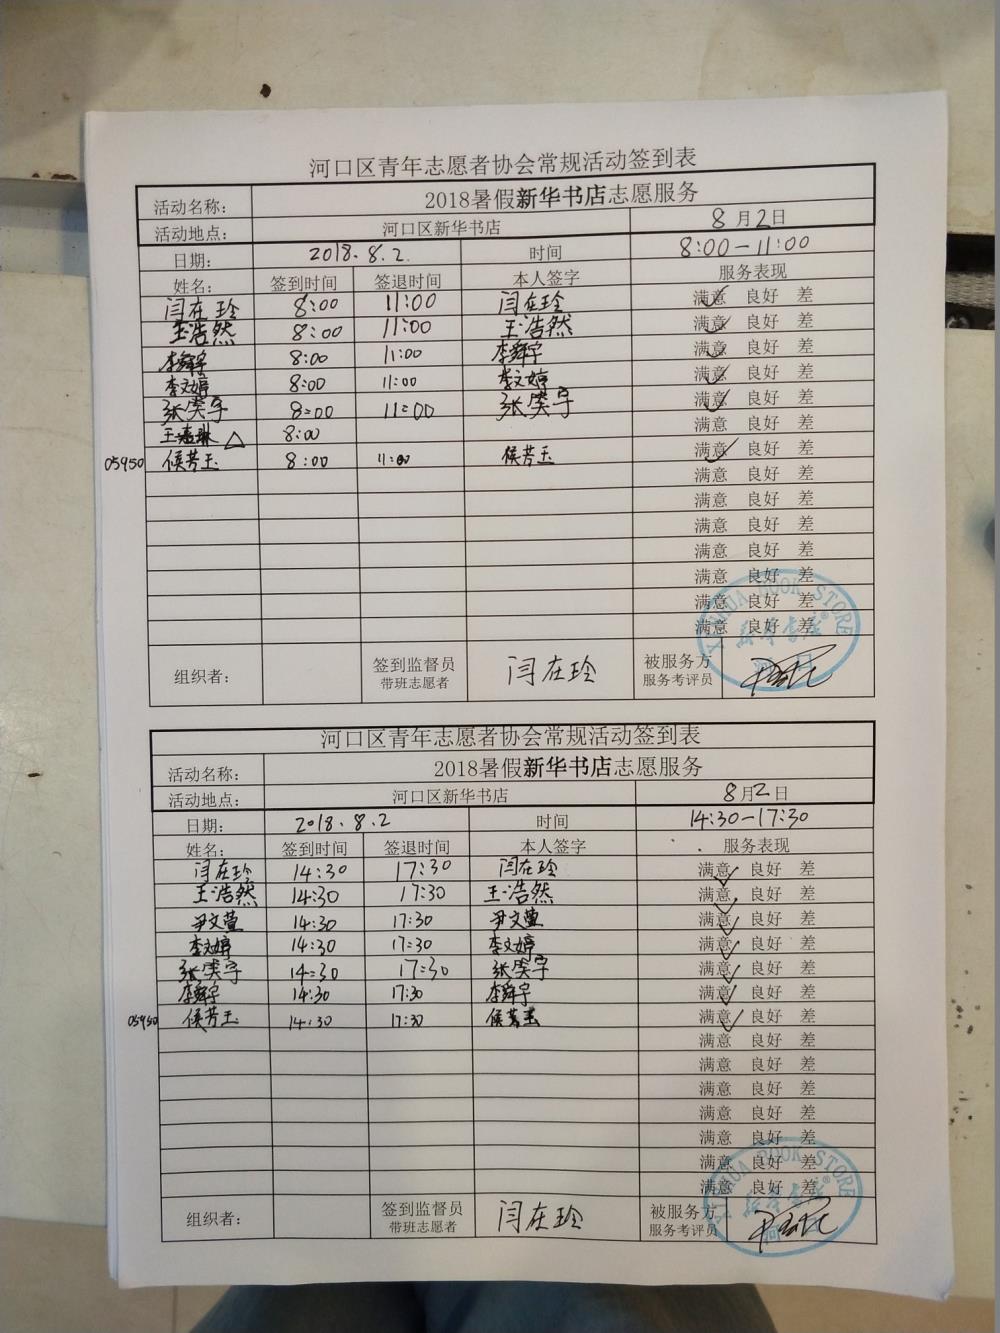 河口区青年志愿者协会常规活动签到表
活动名称： 2018暑假新华书店志愿服务
活动地点： 河口区新华书店 8月2日
日期： 2018.8.2. 时间 8:00-11:00
姓名： 签到时间 签退时间 本人签字 服务表现
闫在玲 8:00 11:00 闫在玲 满意 良好 差
王浩然 8:00 11:00 王浩然 满意 良好 差
李舜宇 8:00 11:00 李舜宇 满意 良好 差
李文婷 8:00 11:00 李文婷 满意 良好 差
张笑宇 8:00 11:00 张笑宇 满意 良好 差
王嘉琳 △ 8:00 满意 良好 差
05950 侯芳玉 8:00 11:00 侯芳玉 满意 良好 差
满意 良好 差
满意 良好 差
满意 良好 差
满意 良好 差
满意 良好 差
满意 良好 差
满意 良好 差
组织者： 签到监督员 闫在玲 被服务方
带班志愿者 服务考评员
XINHUA BOOK STORE
新华书店
河口
河口区青年志愿者协会常规活动签到表
活动名称： 2018暑假新华书店志愿服务
活动地点： 河口区新华书店 8月2日
日期： 2018.8.2 时间 14:30-17:30
姓名： 签到时间 签退时间 本人签字 服务表现
闫在玲 14:30 17:30 闫在玲 满意 良好 差
王浩然 14:30 17:30 王浩然 满意 良好 差
尹文萱 14:30 17:30 尹文萱 满意 良好 差
李文婷 14:30 17:30 李文婷 满意 良好 差
张笑宇 14:30 17:30 张笑宇 满意 良好 差
李舜宇 14:30 17:30 李舜宇 满意 良好 差
05950 侯芳玉 14:30 17:30 侯芳玉 满意 良好 差
满意 良好 差
满意 良好 差
满意 良好 差
满意 良好 差
满意 良好 差
满意 良好 差
满意 良好 差
组织者： 签到监督员 闫在玲 被服务方
带班志愿者 服务考评员
XINHUA BOOK STORE
新华书店
河口